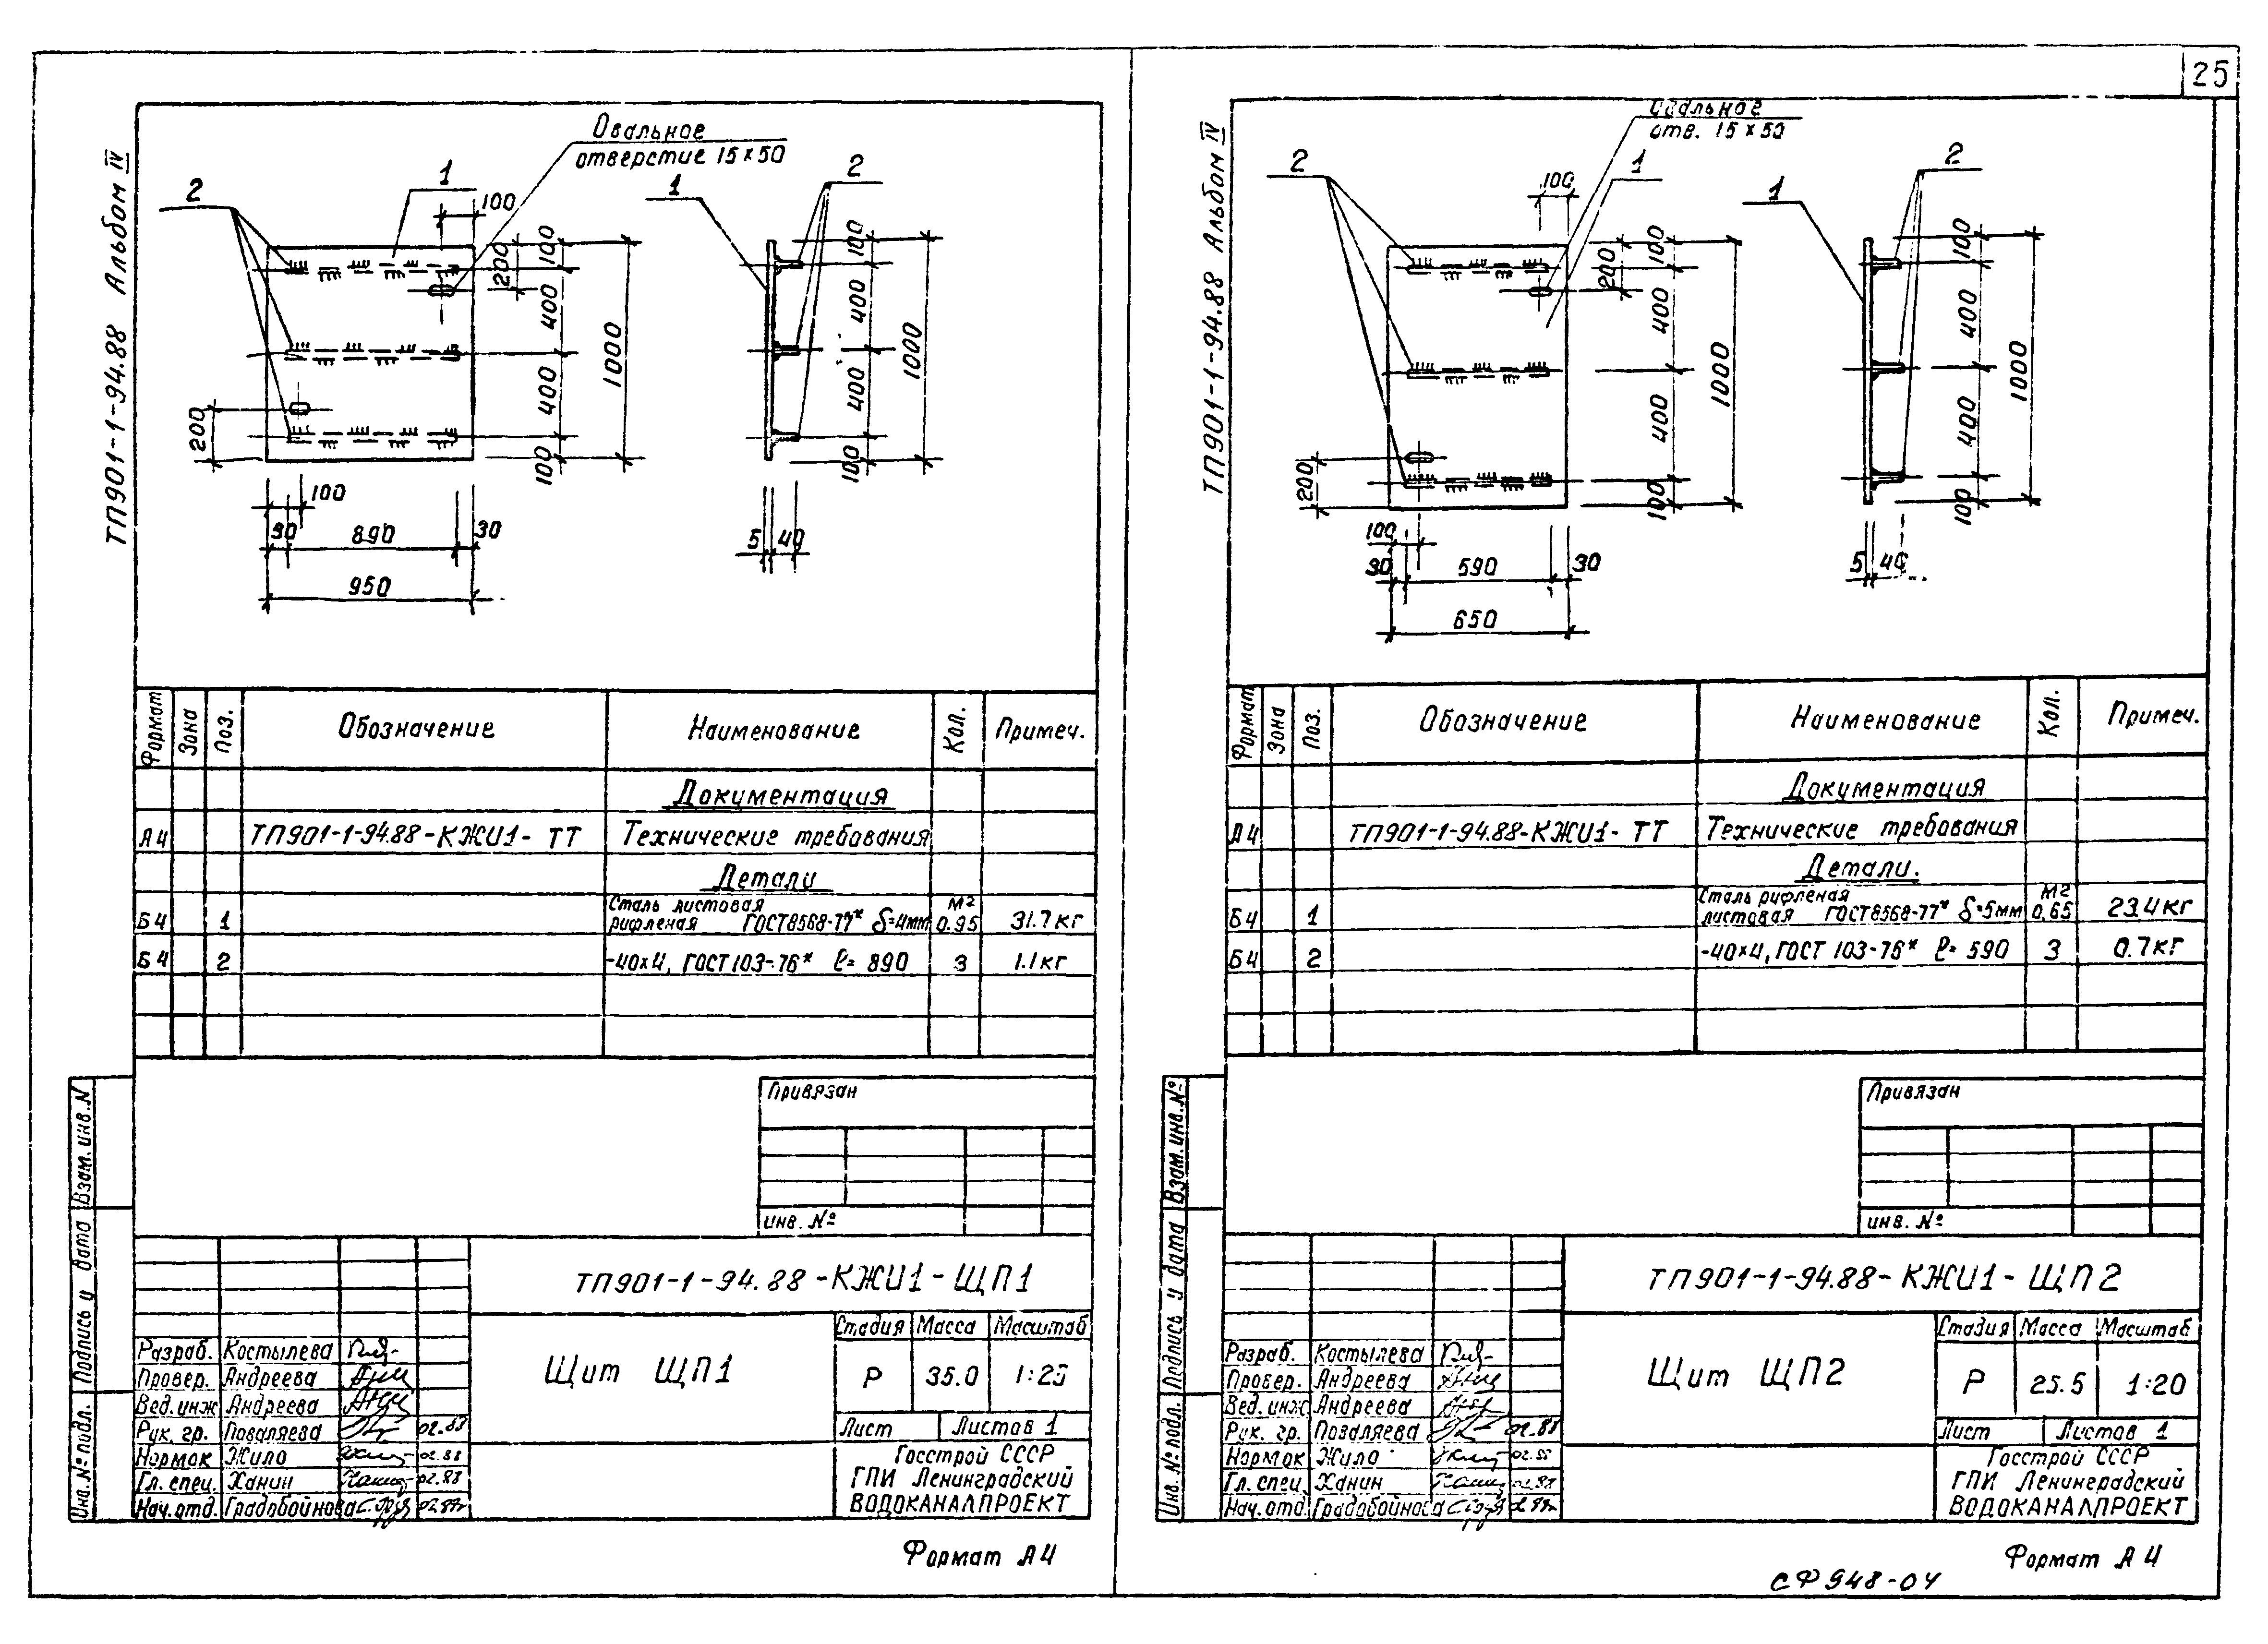 25
ТП901-1-94.88 Альбом IV
Овальное
отверстие 15×50
2
1
100
200
100
400
400
100
1000
200
100
30
890
30
950
1
2
100
400
400
100
1000
5
40
Формат
Зона
Поз.
Обозначение
Наименование
Кол.
Примеч.
Документация
А4 ТП901-1-94.88-КЖИ1-ТТ Технические требования
Детали
Сталь листовая м2
Б4 1 рифленая ГОСТ8568-77* δ=4мм 0.95 31.7кг
Б4 2 -40×4, ГОСТ 103-76* ℓ= 890 3 1.1кг
Привязан
инв. №
Взам. инв. №
Подпись и дата
Инв. № подл.
ТП901-1-94.88-КЖИ1-ЩП1
Щит ЩП1
Стадия Масса Масштаб
Р 35.0
Лист Листов 1
Госстрой СССР
ГПИ Ленинградский
ВОДОКАНАЛПРОЕКТ
Разраб. Костылева
Провер. Андреева
Вед. инж Андреева
Рук. гр. Поваляева 02.88
Нормок Жило 02.88
Гл. спец. Ханин 02.88
Нач. отд. Градобойнова 02.88г
Формат А4
ТП901-1-94.88 Альбом IV
Овальное
отв. 15×50
2
1
100
200
100
400
400
100
1000
200
100
30
590
30
650
1
2
100
400
400
100
1000
5
40
Формат
Зона
Поз.
Обозначение
Наименование
Кол.
Примеч.
Документация
А4 ТП901-1-94.88-КЖИ1-ТТ Технические требования
Детали.
Сталь рифленая м2
Б4 1 листовая ГОСТ8568-77* δ=5мм 0,65 23.4кг
Б4 2 -40×4, ГОСТ 103-76* ℓ= 590 3 0.7кг
Привязан
инв. №
Взам. инв. №
Подпись и дата
Инв. № подл.
ТП901-1-94.88-КЖИ1-ЩП2
Щит ЩП2
Стадия Масса Масштаб
Р 25.5 1:20
Лист Листов 1
Госстрой СССР
ГПИ Ленинградский
ВОДОКАНАЛПРОЕКТ
Разраб. Костылева
Провер. Андреева
Вед. инж Андреева
Рук. гр. Поваляева 02.88
Нормок Жило 02.88
Гл. спец. Ханин 02.88
Нач. отд. Градобойнова 02.88г
Формат А4
СФ 948-04